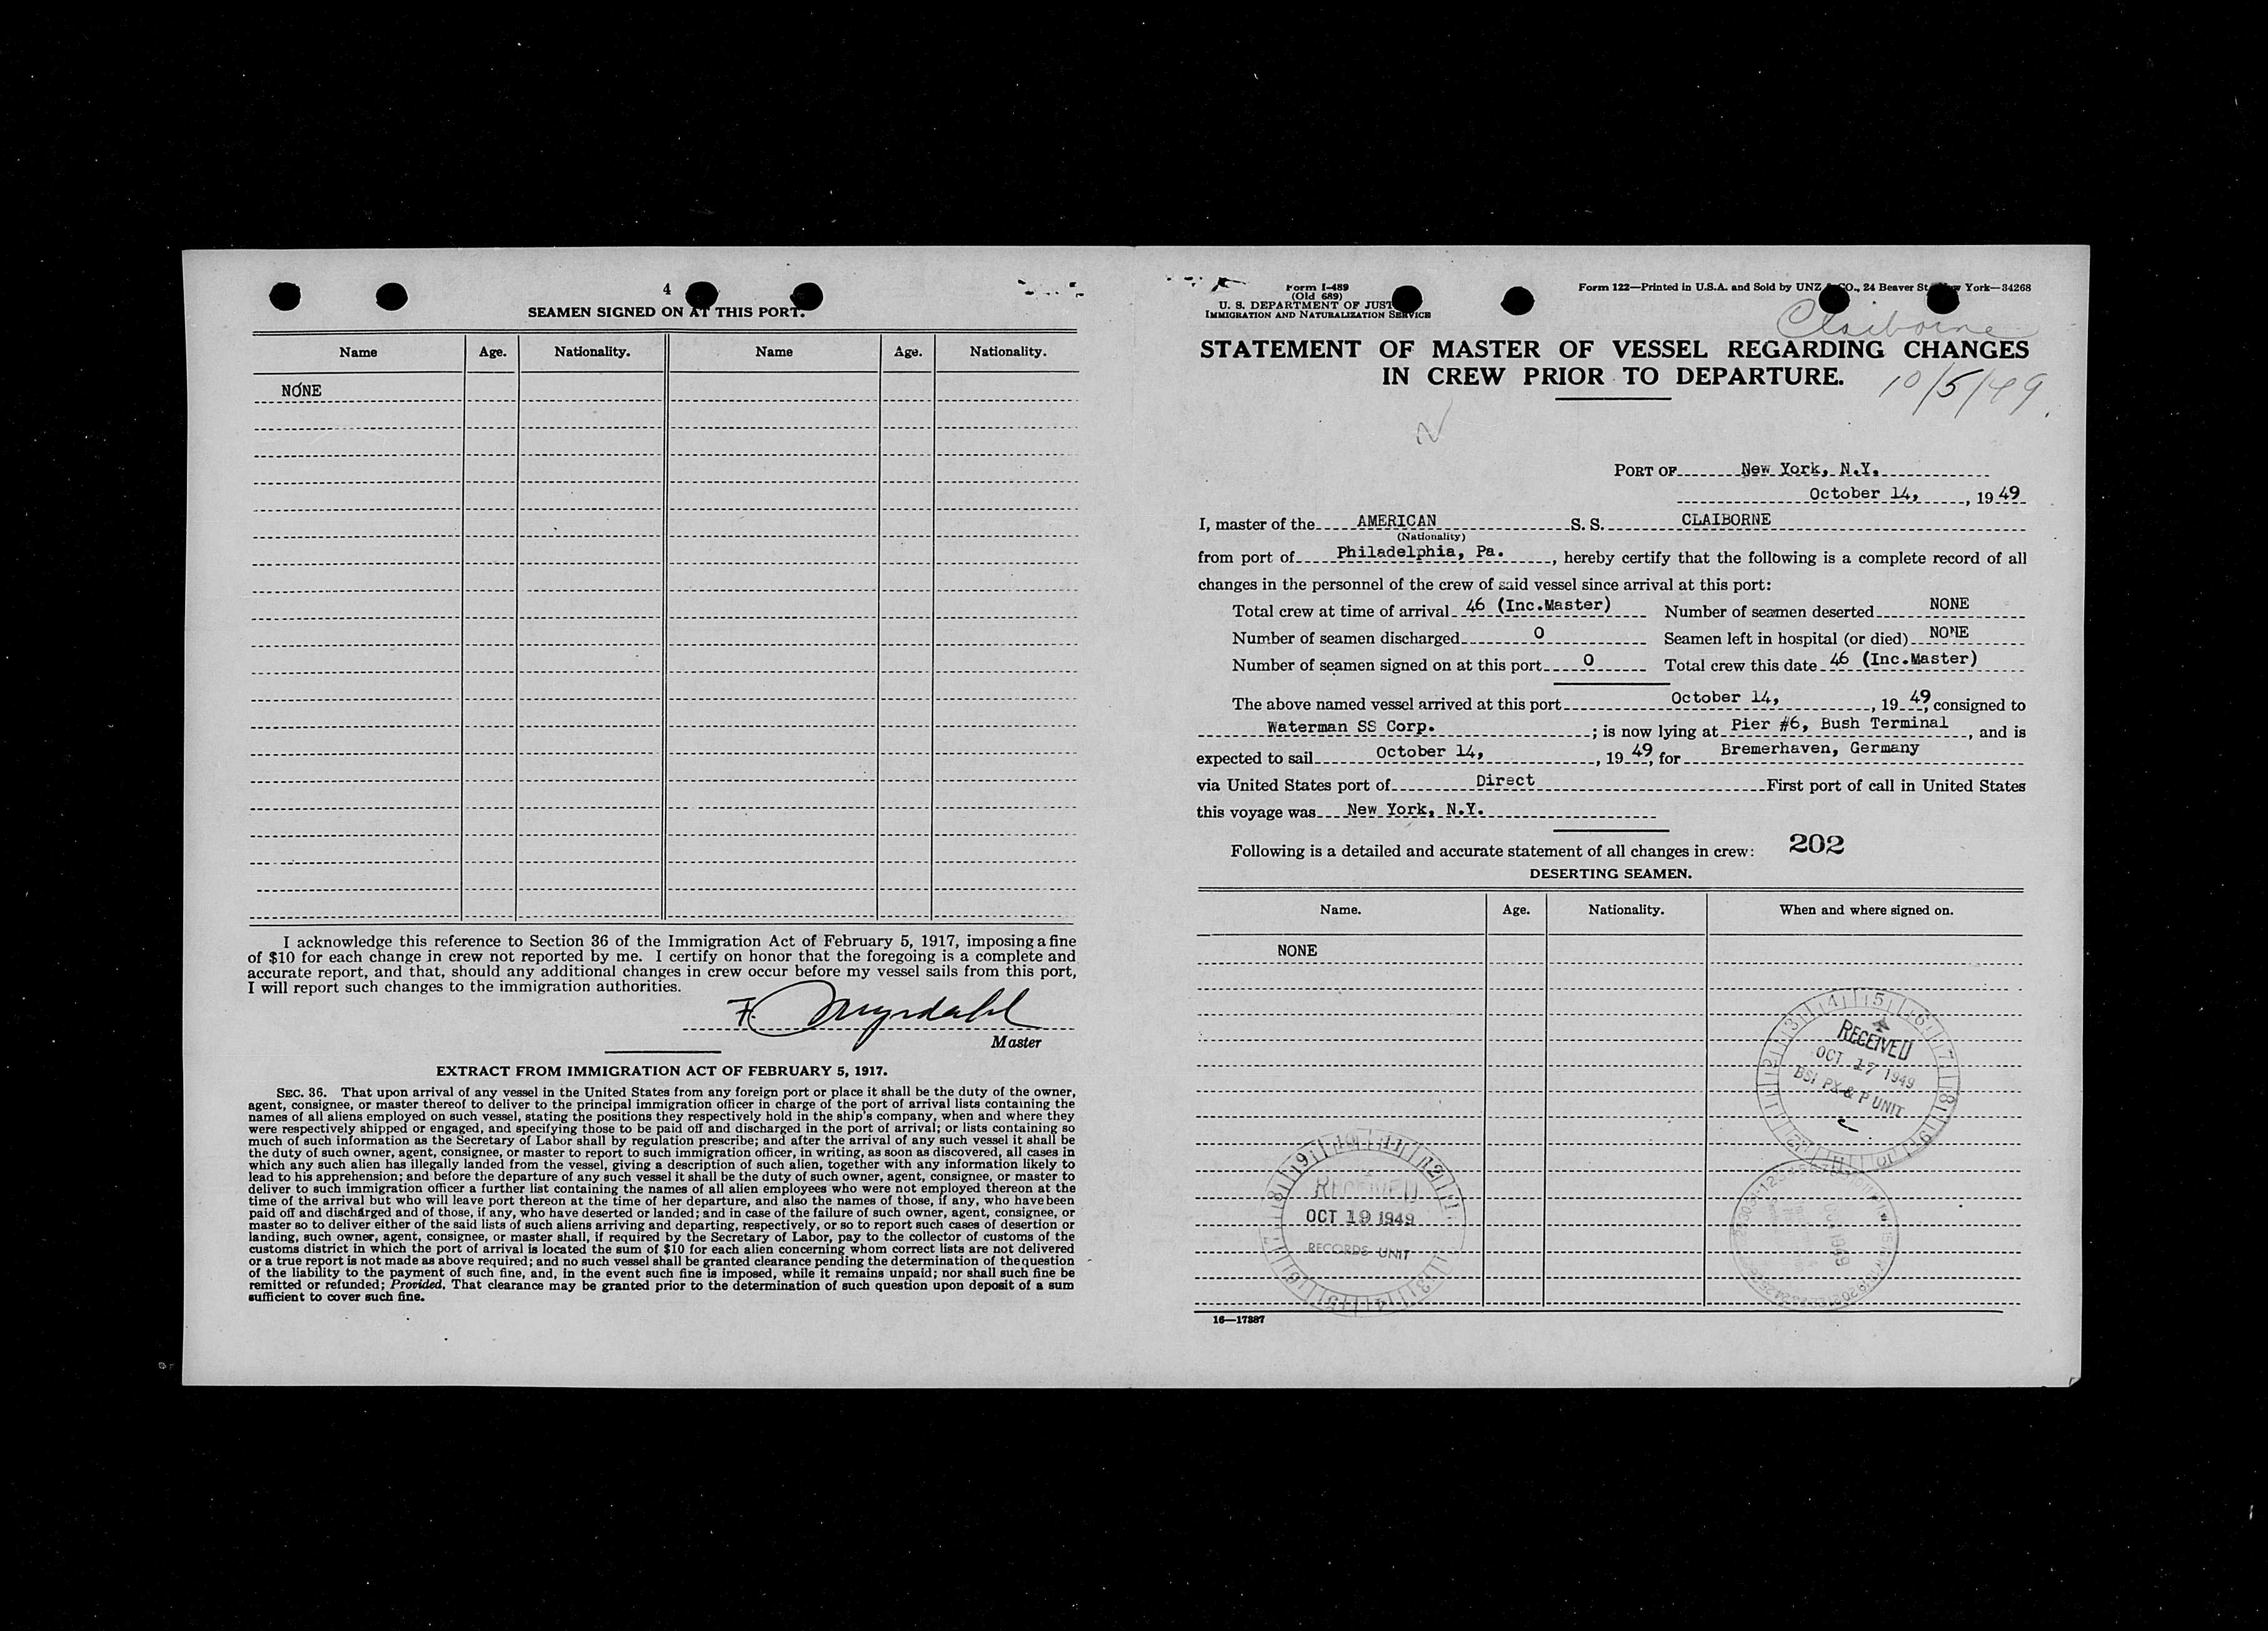 4
SEAMEN SIGNED ON AT THIS PORT.
Name Age. Nationality. Name Age. Nationality.
NONE
I acknowledge this reference to Section 36 of the Immigration Act of February 5, 1917, imposing a fine
of $10 for each change in crew not reported by me. I certify on honor that the foregoing is a complete and
accurate report, and that, should any additional changes in crew occur before my vessel sails from this port,
I will report such changes to the immigration authorities.
F. Myrdahl
Master
EXTRACT FROM IMMIGRATION ACT OF FEBRUARY 5, 1917.
SEC. 36. That upon arrival of any vessel in the United States from any foreign port or place it shall be the duty of the owner,
agent, consignee, or master thereof to deliver to the principal immigration officer in charge of the port of arrival lists containing the
names of all aliens employed on such vessel, stating the positions they respectively hold in the ship's company, when and where they
were respectively shipped or engaged, and specifying those to be paid off and discharged in the port of arrival; or lists containing so
much of such information as the Secretary of Labor shall by regulation prescribe; and after the arrival of any such vessel it shall be
the duty of such owner, agent, consignee, or master to report to such immigration officer, in writing, as soon as discovered, all cases in
which any such alien has illegally landed from the vessel, giving a description of such alien, together with any information likely to
lead to his apprehension; and before the departure of any such vessel it shall be the duty of such owner, agent, consignee, or master to
deliver to such immigration officer a further list containing the names of all alien employees who were not employed thereon at the
time of the arrival but who will leave port thereon at the time of her departure, and also the names of those, if any, who have been
paid off and discharged and of those, if any, who have deserted or landed; and in case of the failure of such owner, agent, consignee, or
master so to deliver either of the said lists of such aliens arriving and departing, respectively, or so to report such cases of desertion or
landing, such owner, agent, consignee, or master shall, if required by the Secretary of Labor, pay to the collector of customs of the
customs district in which the port of arrival is located the sum of $10 for each alien concerning whom correct lists are not delivered
or a true report is not made as above required; and no such vessel shall be granted clearance pending the determination of the question
of the liability to the payment of such fine, and, in the event such fine is imposed, while it remains unpaid; nor shall such fine be
remitted or refunded; Provided, That clearance may be granted prior to the determination of such question upon deposit of a sum
sufficient to cover such fine.
Form I-489
(Old 689)
U. S. DEPARTMENT OF JUST
IMMIGRATION AND NATURALIZATION SERVICE
Form 122—Printed in U.S.A. and Sold by UNZ & CO., 24 Beaver St., New York—34268
Claiborne
STATEMENT OF MASTER OF VESSEL REGARDING CHANGES
IN CREW PRIOR TO DEPARTURE.
10/5/49
PORT OF New York, N.Y.
October 14, , 19 49
I, master of the AMERICAN S. S. CLAIBORNE
(Nationality)
from port of Philadelphia, Pa. , hereby certify that the following is a complete record of all
changes in the personnel of the crew of said vessel since arrival at this port:
Total crew at time of arrival 46 (Inc.Master) Number of seamen deserted NONE
Number of seamen discharged 0 Seamen left in hospital (or died) NONE
Number of seamen signed on at this port 0 Total crew this date 46 (Inc.Master)
The above named vessel arrived at this port October 14, , 19 49, consigned to
Waterman SS Corp. ; is now lying at Pier #6, Bush Terminal , and is
expected to sail October 14, , 19 49, for Bremerhaven, Germany
via United States port of Direct First port of call in United States
this voyage was New York, N.Y.
Following is a detailed and accurate statement of all changes in crew: 202
DESERTING SEAMEN.
Name. Age. Nationality. When and where signed on.
NONE
RECEIVED
OCT 17 1949
BSI PX & P UNIT
RECEIVED
OCT 19 1949
RECORDS UNIT
16—17887